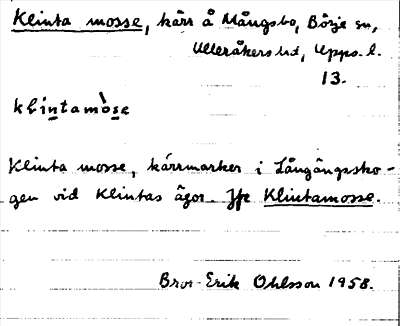 Klinta mosse, kärr å Mångsbo, Börje sn,
Ulleråkers hd, Upps. l.
13.
klintamòse
Klinta mosse, kärrmarker i Långängssko-
gen vid Klintas ägor. Jfr Klintamosse.
Bror-Erik Ohlsson 1958.